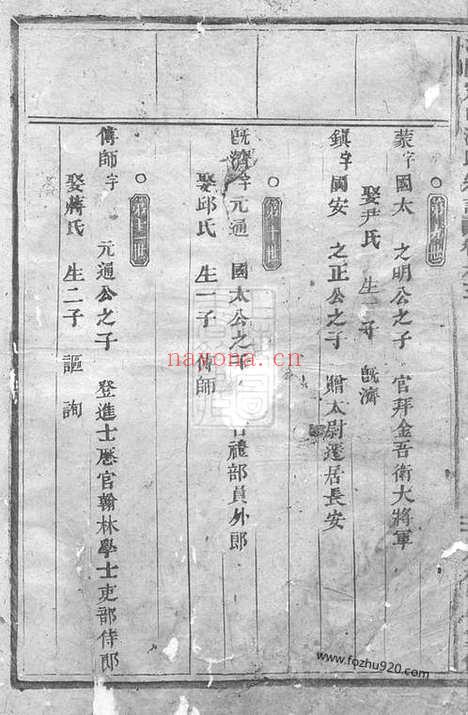 蒙字國太 之明公之子 官拜金吾衛大將軍
娶尹氏 生一子 旣濟
鎮字國安 之正公之子 贈太尉遷居長安
旣濟字元通 國太公之子 官禮部員外郎
娶邱氏 生一子 傳師
傳師字 元通公之子 登進士歷官翰林學士吏部侍郎
娶蔣氏 生二子 謳 詢
nayona.cn
www.fozhu920.com